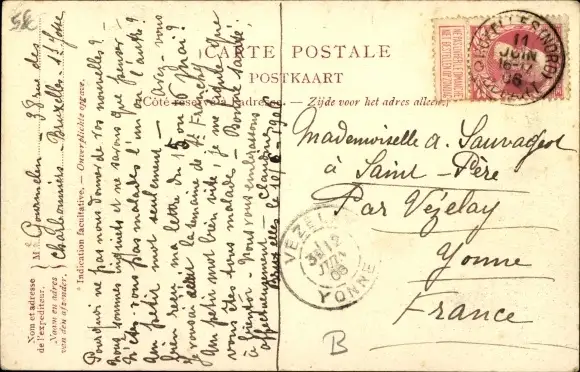 58c
CARTE POSTALE
POSTKAART
Côté réservé à l'adresse. — Zijde voor het adres alleen.
BRUXELLES (NORD)
11
JUIN
06
Mademoiselle A. Sauvageot
à Saint-Père
Par Vézelay
Yonne
France
VEZELAY
12
JUIN
06
YONNE
B
Nom et adresse
de l'expéditeur.
Naam en adres
van den afzender.
M Gourmelen — 38 rue des
Charbonniers — Bruxelles — St Josse
* Indication facultative. — Onverplichte opgave.
Pourquoi ne pas nous donner de vos nouvelles?
nous sommes inquiets et ne savons que penser —
N'êtes-vous pas malades l'un ou l'autre?
Un petit mot seulement — Avez-vous
bien reçu ma lettre du 15 ou 16 Mai?
la semaine de
Un petit mot bien vite, je me figure que
vous êtes tous malades — Bonne santé,
à bientôt — nous vous embrassons
affectueusement —
Bruxelles le 10/6-1906